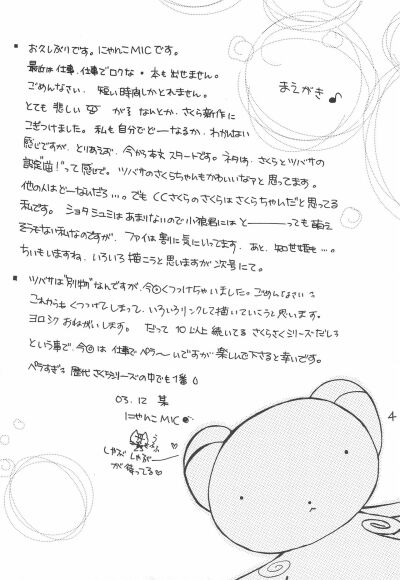 まえがき♪
■ お久しぶりです。にゃんこMICです。
最近は仕事、仕事でロクな・本も出せません。
ごめんなさい、短い時間しかとれません。
とても悲しい が なんとか、さくら新作に
こぎつけました。私も自分でどーなるか、わかんない
感じですが、とりあえず、今から本文スタートです。ネタは、さくらとツバサの
って感じで。ツバサのさくらちゃんもかわいいなァと思ってます。
他の人はどーなんだろ…。でもCCさくらのさくらはさくらちゃんだと思ってる
私です。ショタシュミはあまりないので小狼君にはと―――っても萌え
そうもない私なのですが、ファイは割に気にいってます。あと、知世姫も…。
ちぃもいますね、いろいろ描こうと思いますが次号にて。
■ ツバサは"別物"なんですが、今回くっつけちゃいました。ごめんなさい。
これからもくっつけてしまって、いろいろリンクして描いていこうと思います。
ヨロシクおねがいします。だって10以上続いてるさくらさくシリーズだしろ
という事で、今回は仕事でペラ〜いですが楽しんで下さると幸いです。
ペラすぎる歴代さくらシリーズの中でも1番
03.12 某
にゃんこMIC
しゃぶしゃぶ―
が待ってる♡
4